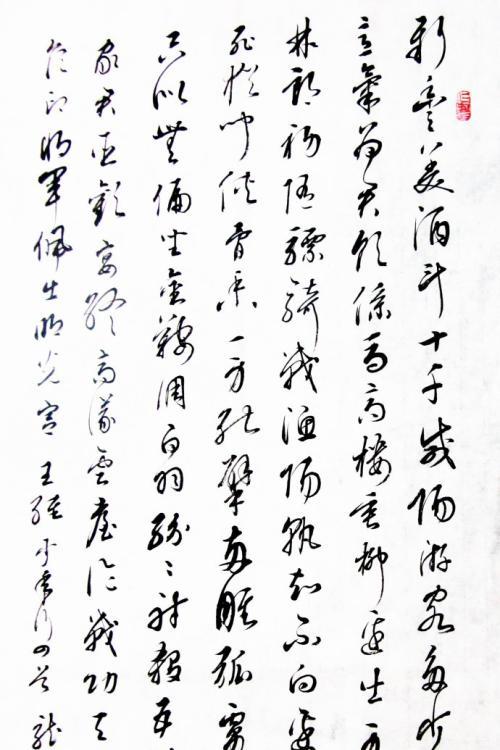 新豐美酒斗十千咸陽游俠多少
意氣為君飲係馬高樓垂柳邊出身
林郎初隨驃騎戰漁陽孰知不向邊
死猶聞俠骨香一身能擘兩雕弧虜
只似無偏坐金鞍調白羽紛〻射殺五
家君臣歡宴終高議雲臺論戰功天
侯印將軍佩出明光宮王維少年行四首龍